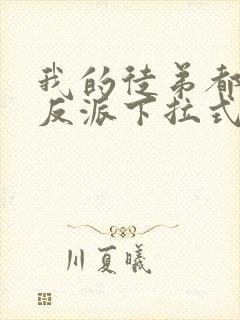 我的徒弟都
反派下拉式
川夏曦